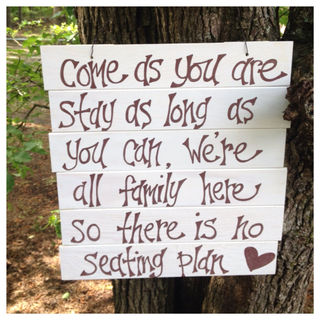 come as you are
stay as long as
you can, we're
all family here
so there is no
seating plan